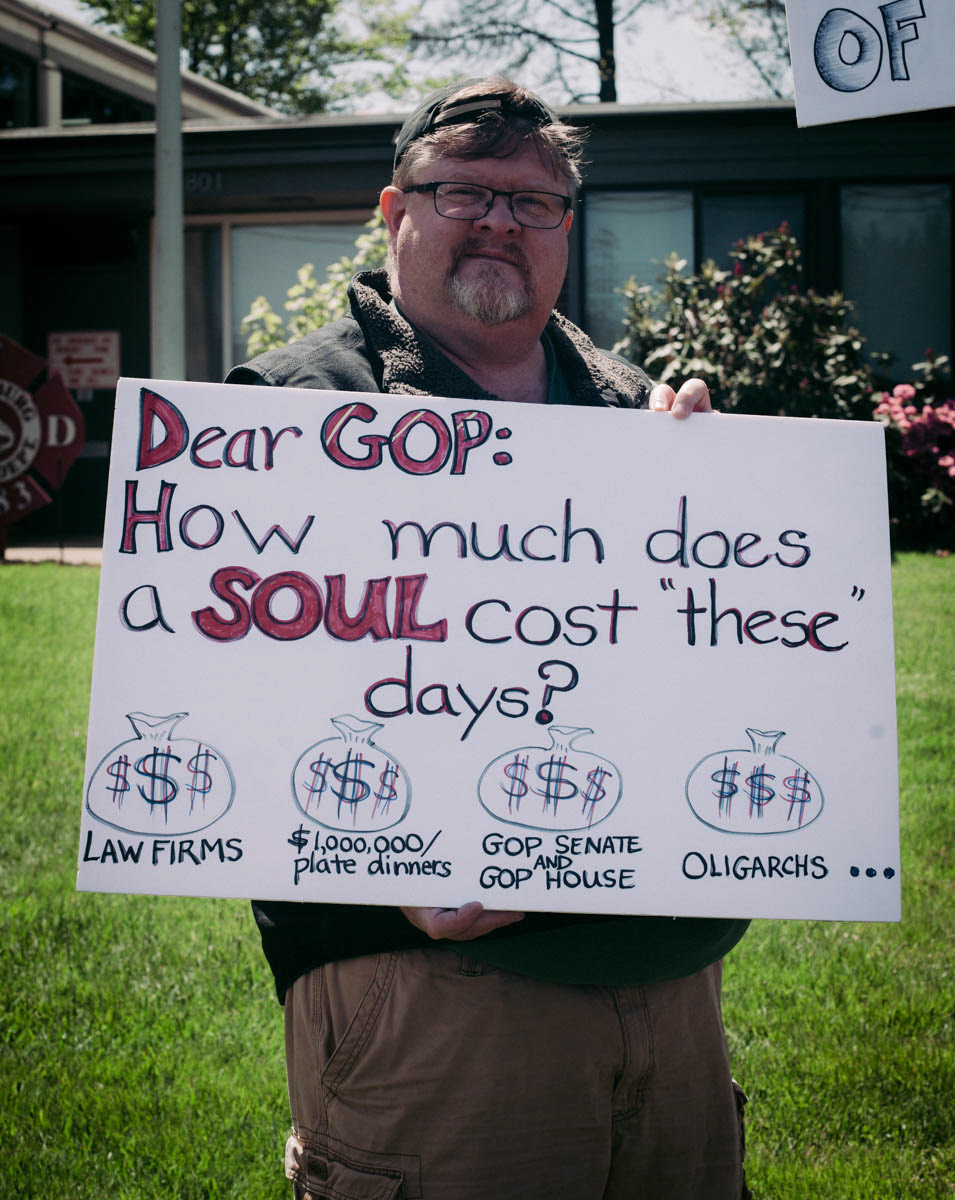 OF
801
Dear GOP:
How much does
a SOUL cost "these"
days?
$$$ $$$ $$$ $$$
LAW FIRMS
$1,000,000/
plate dinners
GOP SENATE
AND
GOP HOUSE
OLIGARCHS ...
BURG
D
DEPT
83